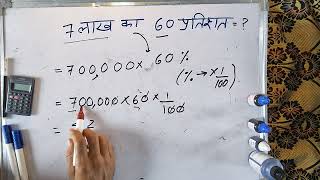 7 लाख का 60 प्रतिशत = ?
= 700,000 × 60 %
(% → × 1/100)
= 700,000 × 60 × 1/100
=